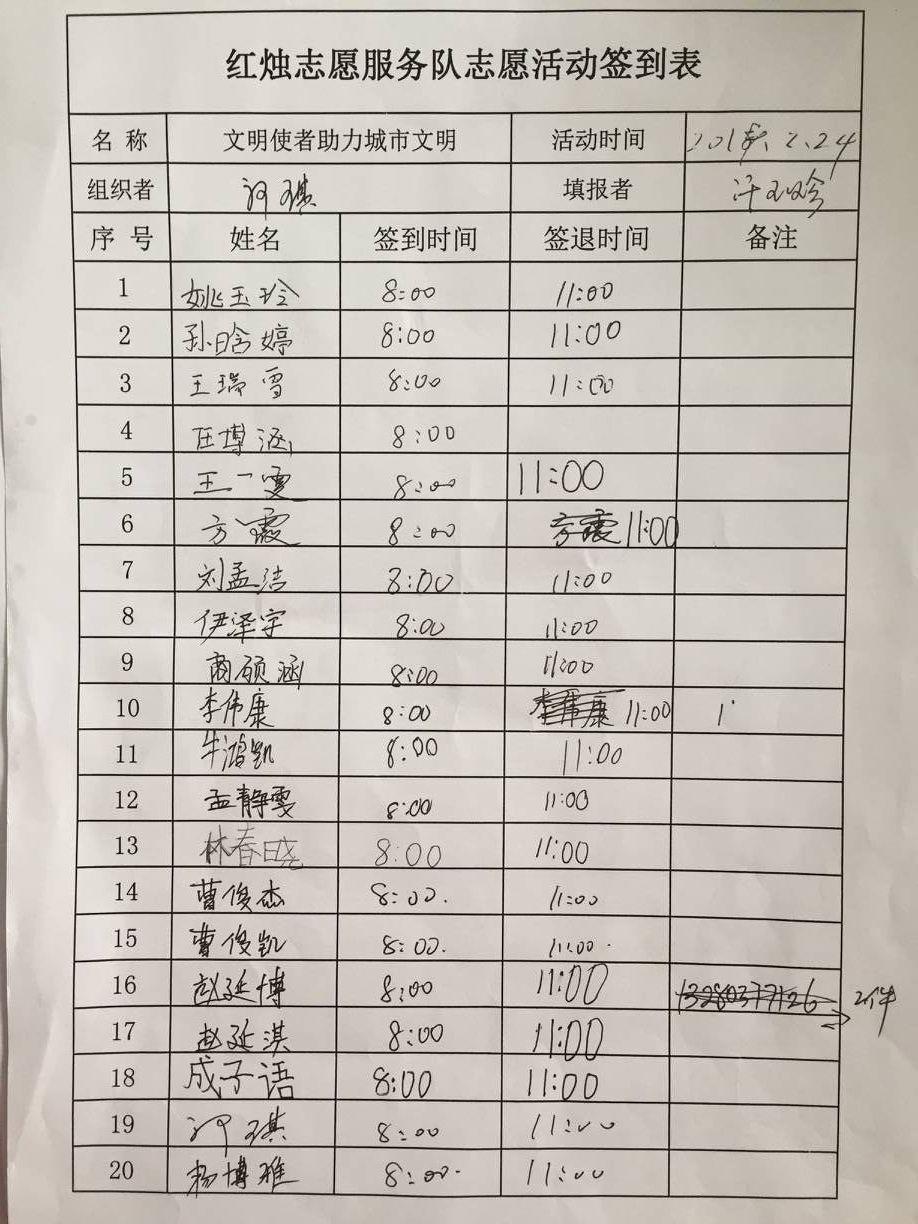 红烛志愿服务队志愿活动签到表
名 称 文明使者助力城市文明 活动时间 2018.2.24
组织者 琪 填报者
序 号 姓名 签到时间 签退时间 备注
1 姚玉玲 8:00 11:00
2 孙晗婷 8:00 11:00
3 王瑞雪 8:00 11:00
4 匡博涵 8:00
5 王一雯 8:00 11:00
6 方霞 8:00 方霞 11:00
7 刘孟洁 8:00 11:00
8 伊泽宇 8:00 11:00
9 商硕涵 8:00 11:00
10 李伟康 8:00 李伟康 11:00
11 牛鸿凯 8:00 11:00
12 孟静雯 8:00 11:00
13 林春晓 8:00 11:00
14 曹俊杰 8:00. 11:00
15 曹俊凯 8:00. 11:00.
16 赵延博 8:00 11:00 13280377126 2件
17 赵延淇 8:00 11:00
18 成子语 8:00 11:00
19 琪 8:00 11:00
20 杨博雅 8:00. 11:00